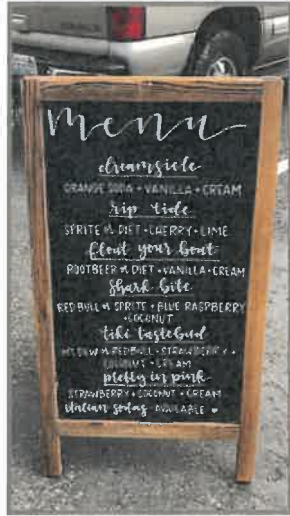 menu
dreamsicle
ORANGE SODA + VANILLA + CREAM
rip tide
SPRITE OR DIET + CHERRY + LIME
float your boat
ROOTBEER OR DIET + VANILLA + CREAM
shark bite
RED BULL OR SPRITE + BLUE RASPBERRY
+ COCONUT
tiki tastebud
MT DEW OR REDBULL + STRAWBERRY +
COCONUT + CREAM
pretty in pink
STRAWBERRY + COCONUT + CREAM
italian sodas AVAILABLE ♥